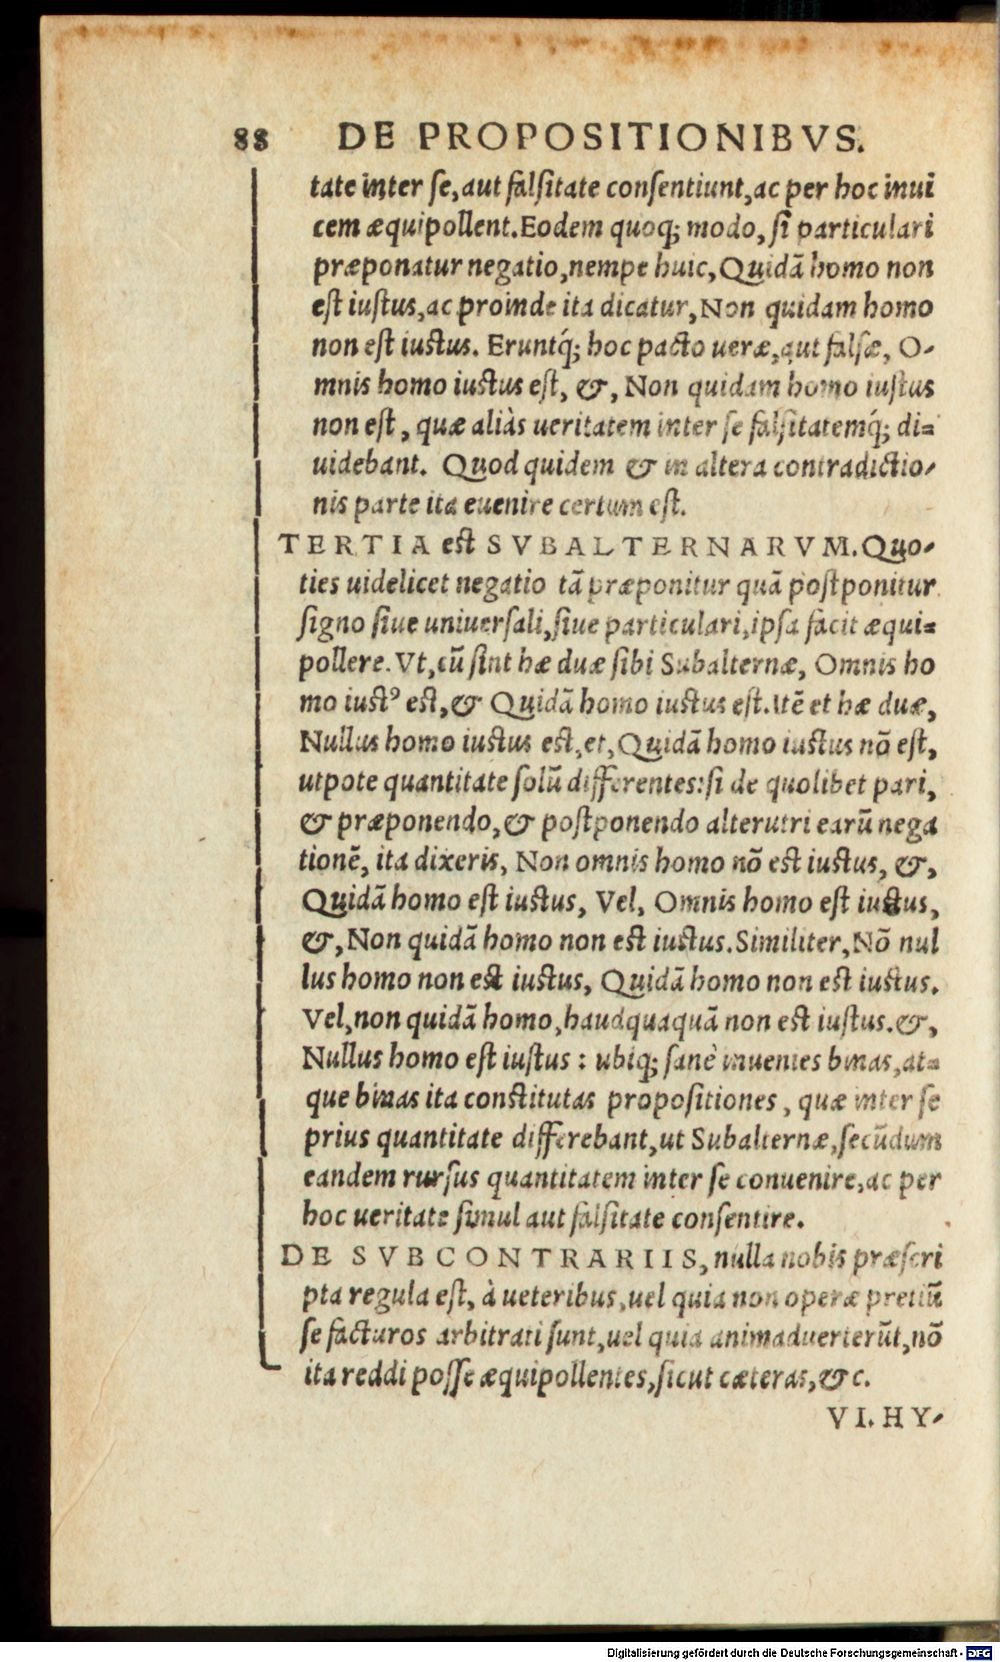 88 DE PROPOSITIONIBVS.
tate inter ſe, aut falſitate conſentiunt, ac per hoc inui
cem æquipollent. Eodem quoq; modo, ſi particulari
præponatur negatio, nempe huic, Quidã homo non
eſt iuſtus, ac proinde ita dicatur, Non quidam homo
non eſt iuctus. Eruntq́; hoc pacto ueræ, aut falſæ, O-
mnis homo iuctus eſt, &, Non quidam homo iuſtus
non eſt, quæ aliàs ueritatem inter ſe falſitatemq́; di=
uidebant. Quod quidem & in altera contradictio-
nis parte ita euenire certum eſt.
TERTIA est SVBALTERNARVM. Quo-
ties uidelicet negatio tã præponitur quã poſtponitur
ſigno ſiue uniuerſali, ſiue particulari, ipſa facit æqui=
pollere. Vt, cũ ſint hæ duæ ſibi Subalternæ, Omnis ho
mo iustꝰ est, & Quidã homo iustus eſt. Itẽ et hæ duæ,
Nullus homo iustus est, et, Quidã homo iustus nõ eſt,
utpote quantitate ſolũ differentes: ſi de quolibet pari,
& præponendo, & poſtponendo alterutri earũ nega
tionẽ, ita dixeris, Non omnis homo nõ est iustus, &,
Quidã homo eſt iustus, Vel, Omnis homo eſt iustus,
&, Non quidã homo non est iustus. Similiter, Nõ nul
lus homo non est iustus, Quidã homo non est iustus.
Vel, non quidã homo, haudquaquã non est iuſtus. &,
Nullus homo eſt iuſtus: ubiq; ſanè inuenies binas, at=
que binas ita constitutas propoſitiones, quæ inter ſe
prius quantitate differebant, ut Subalternæ, ſecũdum
eandem rurſus quantitatem inter ſe conuenire, ac per
hoc ueritate ſimul aut falſitate conſentire.
DE SVBCONTRARIIS, nulla nobis præſcri
pta regula eſt, à ueteribus, uel quia non operæ preciũ
ſe facturos arbitrati ſunt, uel quia animaduerterũt, nõ
ita reddi poſſe æquipollentes, ſicut cæteras, &c.
VI. HY-
Digitalisierung gefördert durch die Deutsche Forschungsgemeinschaft - DFG